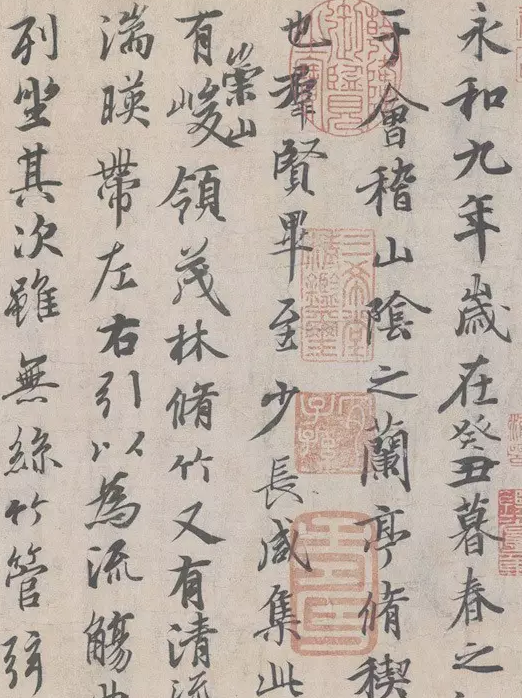 永和九年歲在癸丑暮春之
于會稽山陰之蘭亭脩稧
也羣賢畢至少長咸集此
有崇山峻領茂林脩竹又有清流
湍暎帶左右引以為流觴
列坐其次雖無絲竹管弦
三希堂精鑑璽
宜子孫